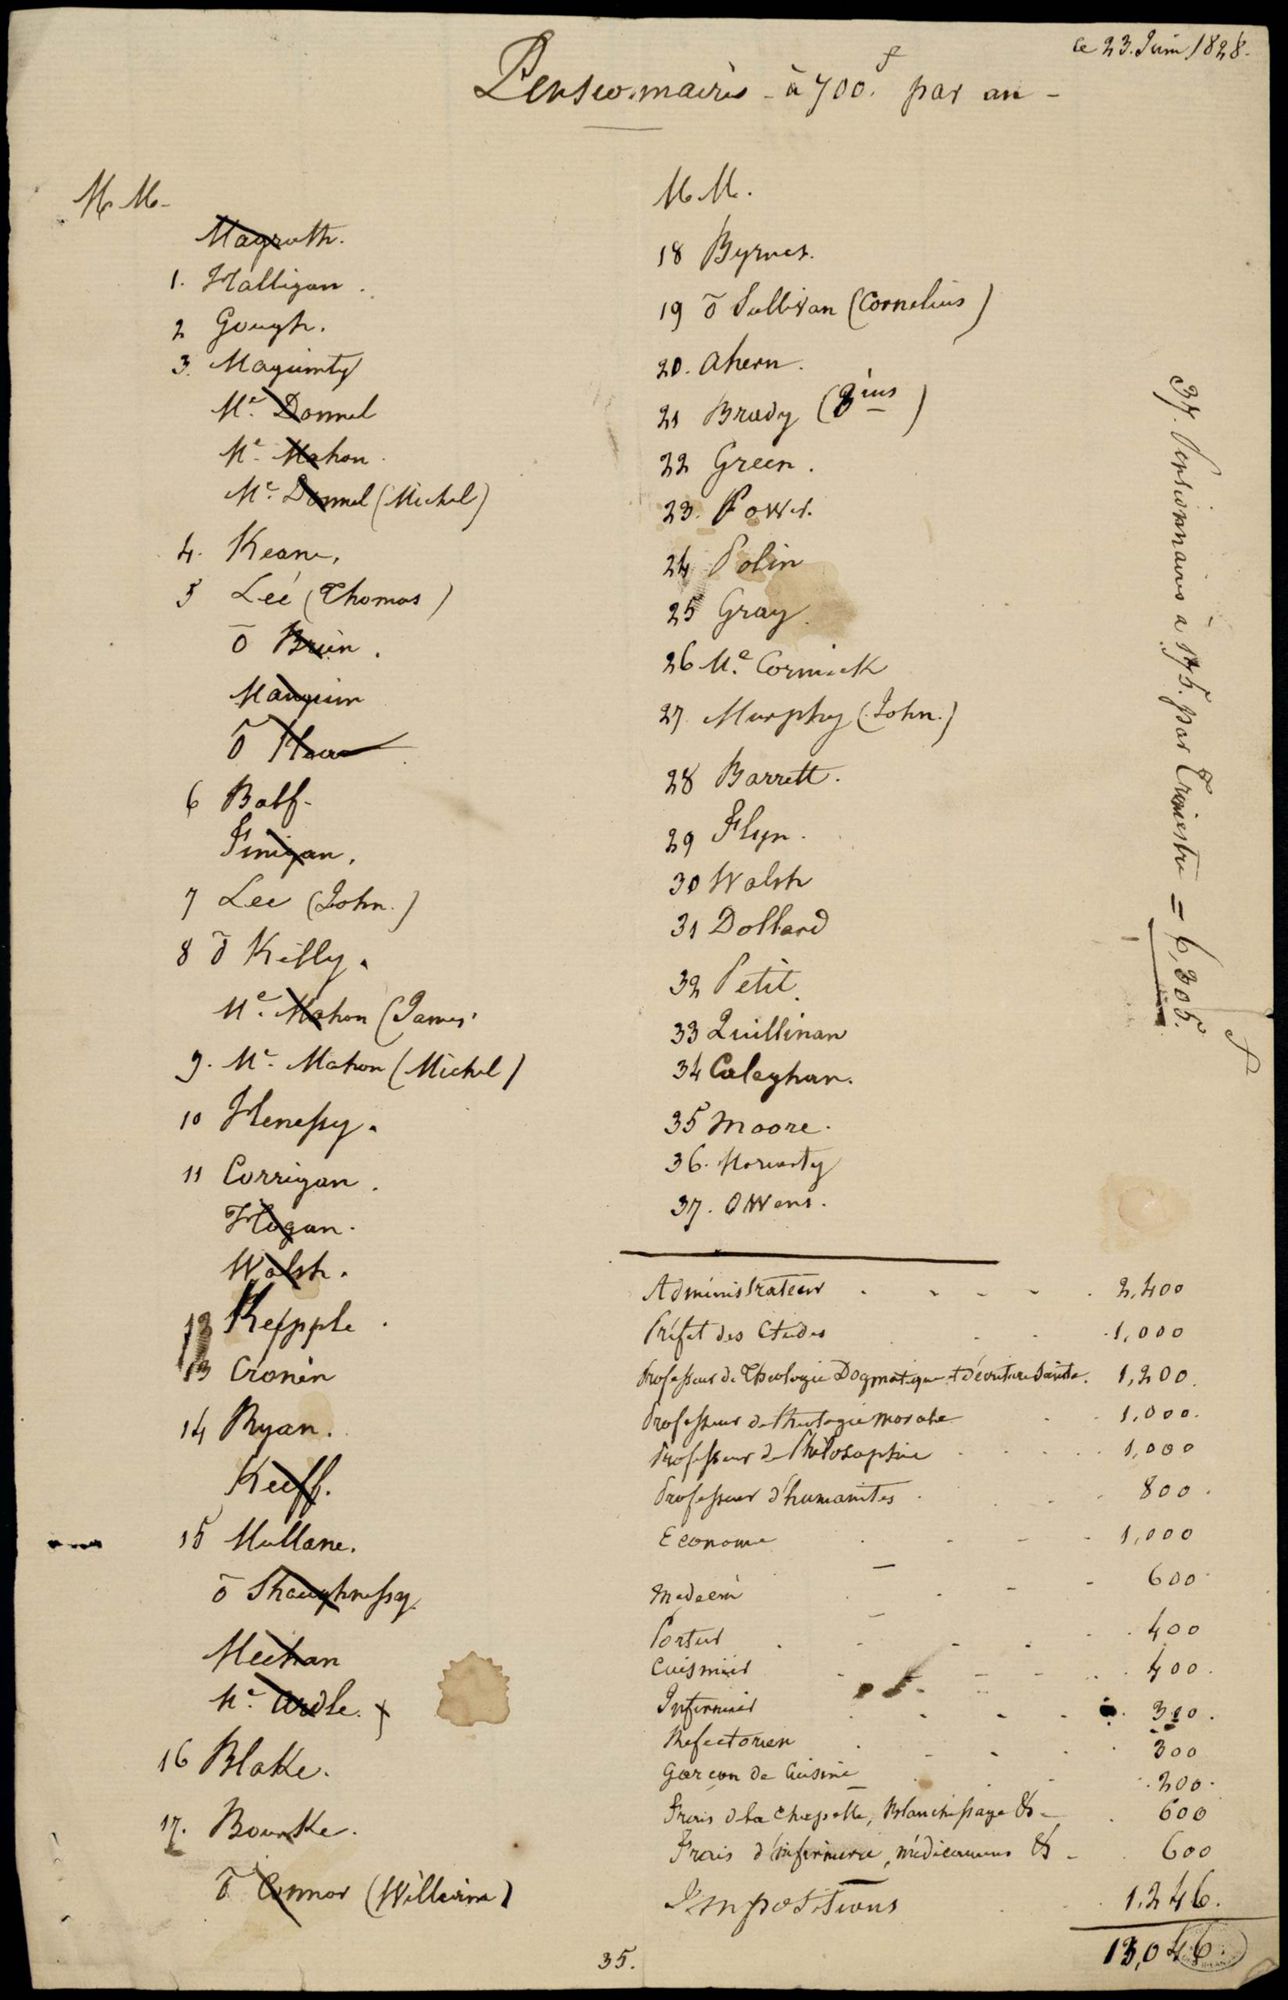 le 23. Juin 1828.
Pensionnaires - à 700.f par an -
M M -
Magrath.
1. Halligan.
2 Gough.
3. Maginnty
Mc. Donnel
Mc. Mahon.
Mc. Donnel (Michel)
4. Keane.
5 Leé (Thomas)
O Brien.
Mauguin
O Hea
6 Balf.
Finigan.
7 Lee (John.)
8 O Killy.
Mc. Mahon (James
9. Mc. Mahon (Michel)
10 Henessy.
11 Corrigan.
Hogan.
Walsh.
12 Kepple.
13 Cronin
14 Ryan.
Keeff.
15 Mullane.
O Shaughnessy.
Meehan
Mc. Ardle.
16 Blake.
17. Bourke.
O Connor (William)
M M.
18 Byrnes.
19 O Sullivan (Cornelius)
20. Ahern.
21 Brady (3ius)
22 Green.
23. Power.
24 Polin
25 Gray.
26 Mc. Cormick
27. Murphy (John.)
28 Barrett.
29 Flyn.
30 Walsh
31 Dollard
32 Petit.
33 Quillinan
34 Caleghan.
35 Moore.
36. Moriarty
37. Owens.
37. Pensionnaires à 175. par Trimestre = 6,305. f
Administrateur 2,400
Préfet des Etudes 1,000
Professeur de Théologie Dogmatique et d'écriture Sainte. 1,200.
Professeur de théologie morale 1,000.
Professeur de Philosophie 1,000
Professeur d'humanités 800.
Econome 1,000
Medecin 600.
Portier 400
Cuisinier 400.
Infirmier 300.
Refectorien 300
Garçon de Cuisine 200.
Frais de la Chapelle, Blanchissage &c - 600
Frais d'infirmerie, médicamens &c - 600
Impositions 1,246.
13,046.
35.